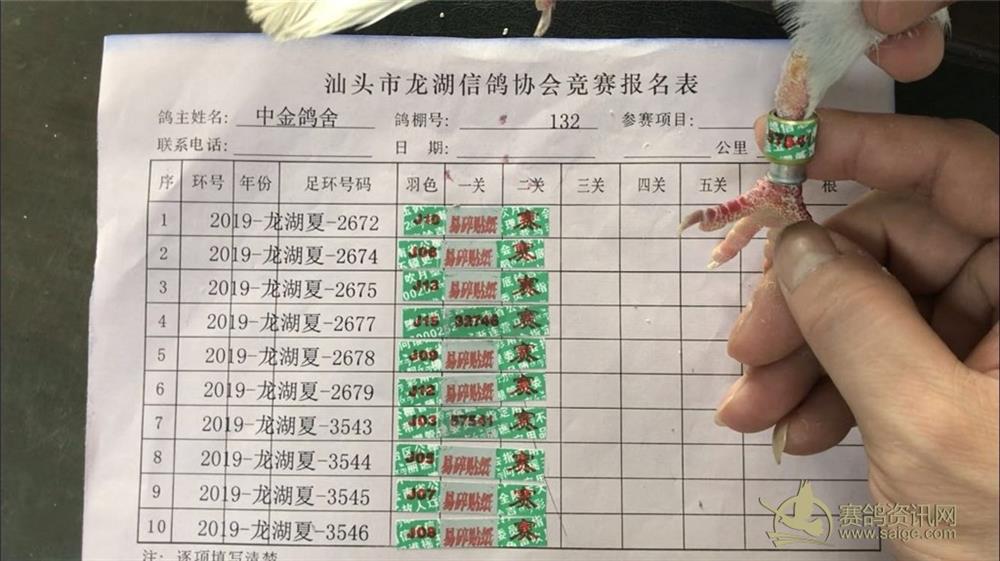 汕头市龙湖信鸽协会竞赛报名表
鸽主姓名: 中金鸽舍 鸽棚号: 132 参赛项目:
联系电话: 日 期: 公里
序 环号 年份 足环号码 羽色 一关 二关 三关 四关 五关 根
1 2019-龙湖夏-2672 J10 易碎贴纸 赛
2 2019-龙湖夏-2674 J06 易碎贴纸 赛
3 2019-龙湖夏-2675 J13 易碎贴纸 赛
4 2019-龙湖夏-2677 J15 32746 赛
5 2019-龙湖夏-2678 J09 易碎贴纸 赛
6 2019-龙湖夏-2679 J12 易碎贴纸 赛
7 2019-龙湖夏-3543 J03 57541 赛
8 2019-龙湖夏-3544 J05 易碎贴纸 赛
9 2019-龙湖夏-3545 J07 易碎贴纸 赛
10 2019-龙湖夏-3546 J08 易碎贴纸 赛
注: 逐项填写清楚
赛鸽资讯网
www.saige.com